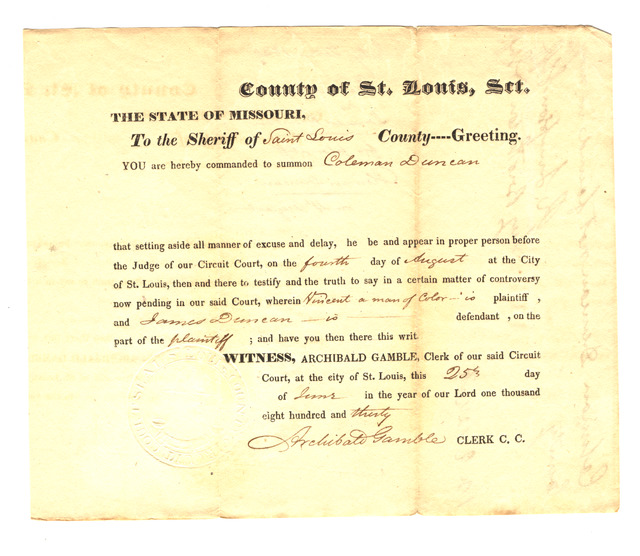 County of St. Louis, Sct.
THE STATE OF MISSOURI,
To the Sheriff of Saint Louis County----Greeting.
YOU are hereby commanded to summon Coleman Duncan
that setting aside all manner of excuse and delay, he be and appear in proper person before
the Judge of our Circuit Court, on the fourth day of August at the City
of St. Louis, then and there to testify and the truth to say in a certain matter of controversy
now pending in our said Court, wherein Vincent a man of Color — is plaintiff ,
and James Duncan — is — defendant , on the
part of the plaintiff ; and have you then there this writ.
WITNESS, ARCHIBALD GAMBLE, Clerk of our said Circuit
Court, at the city of St. Louis, this 25th day
of June in the year of our Lord one thousand
eight hundred and thirty
Archibald Gamble CLERK C. C.